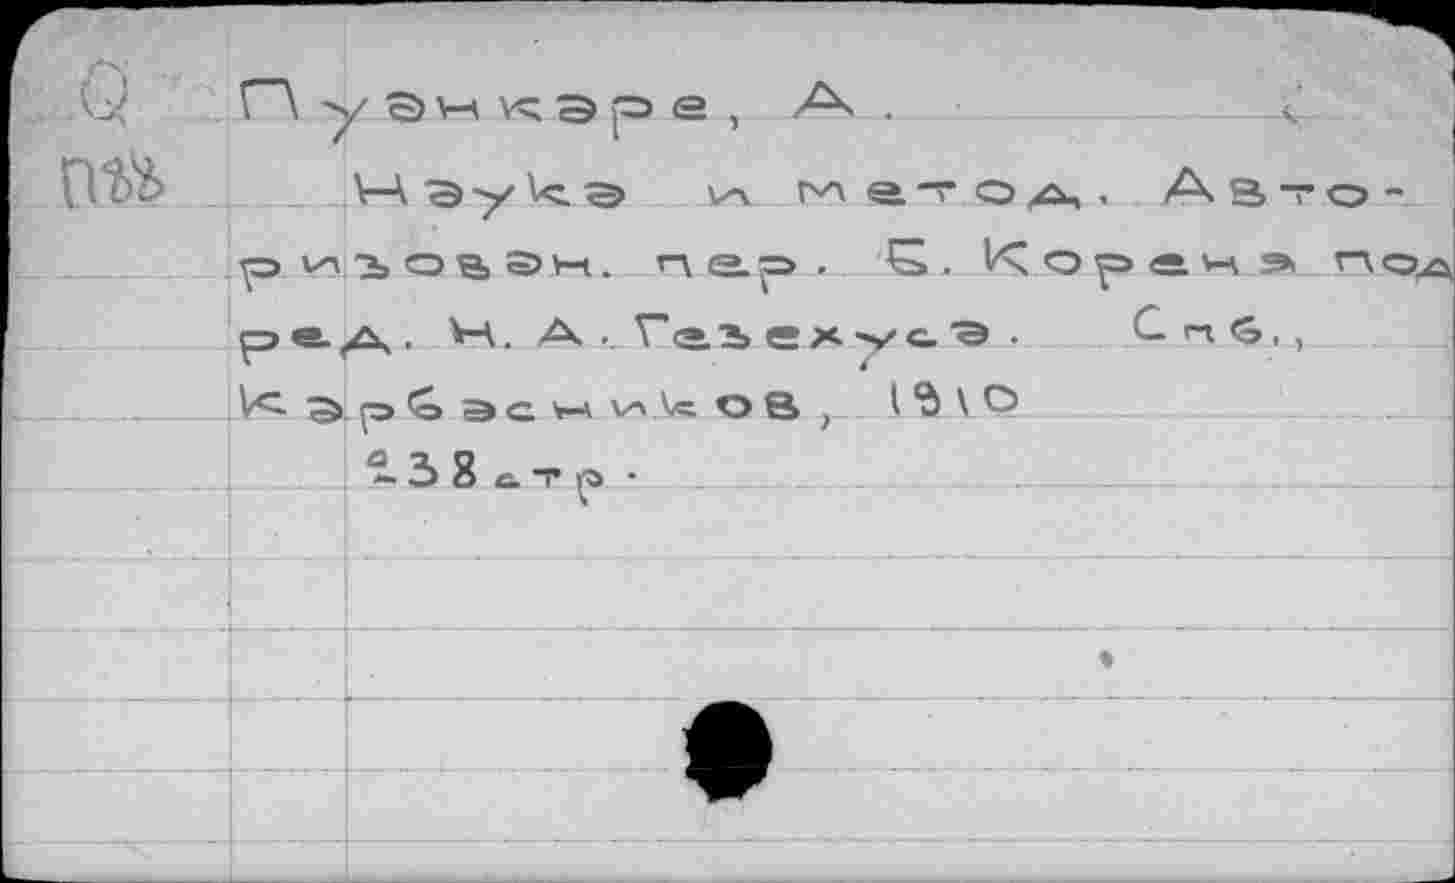 Q Пуанкаре, А.
Наука и метод. Авто-
ризован. пер. Б. Кореня под
ред. Н. А. Гезехуса. Спб.,
Карбасников, 1910
238 стр.